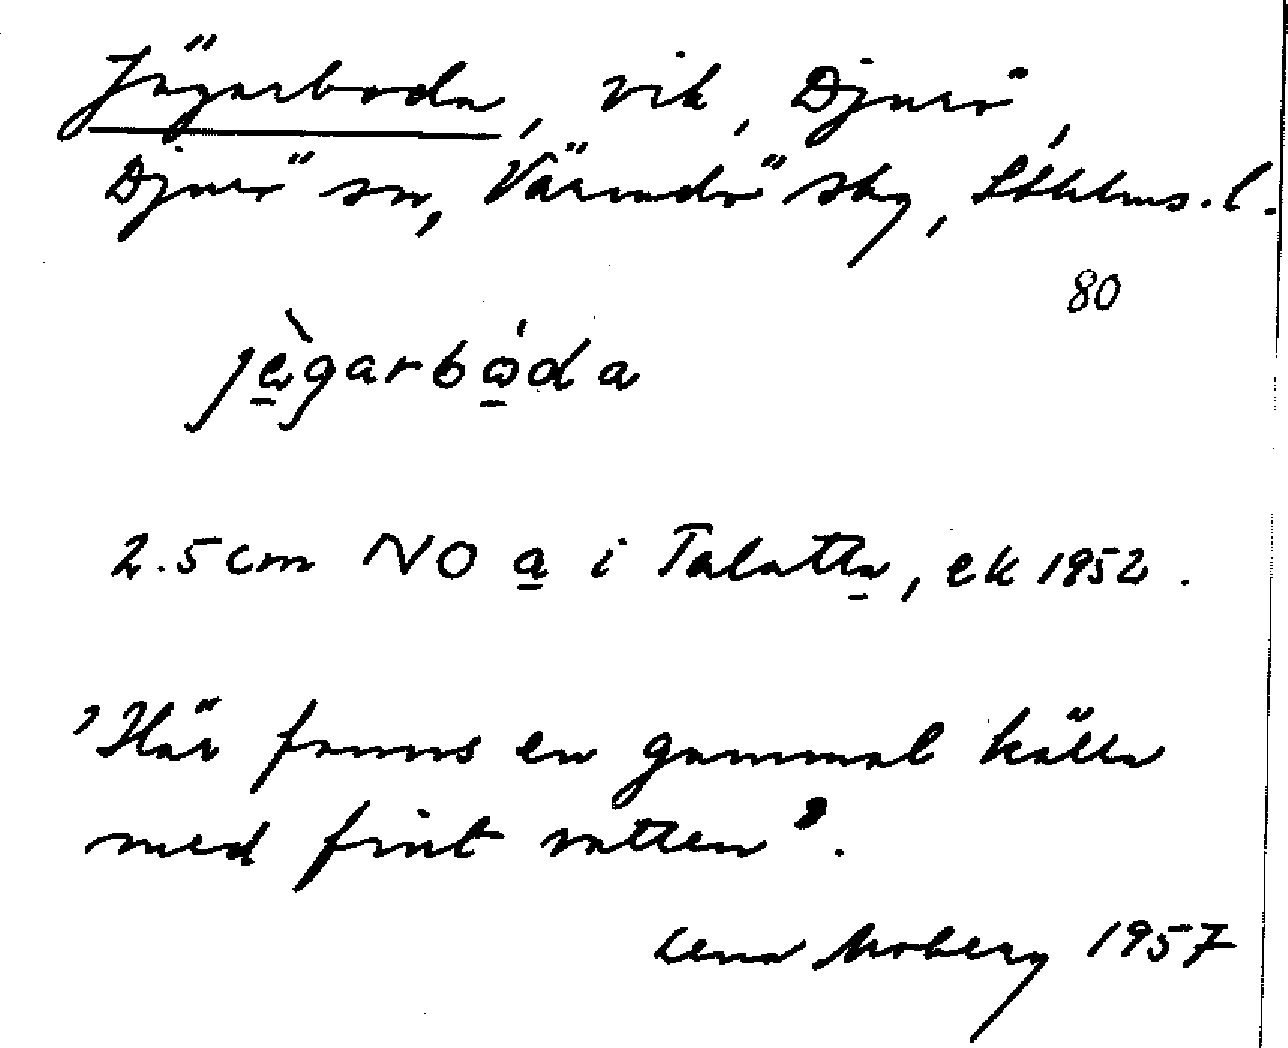 Jägarboda, vik, Djurö,
Djurö sn, Värmdö skg, Sthlms. l.
80
jægarbǿda
2.5 cm NO a i Talatta, ek 1952.
"Här fanns en gammal källa
med fint vatten".
Lena Moberg 1957